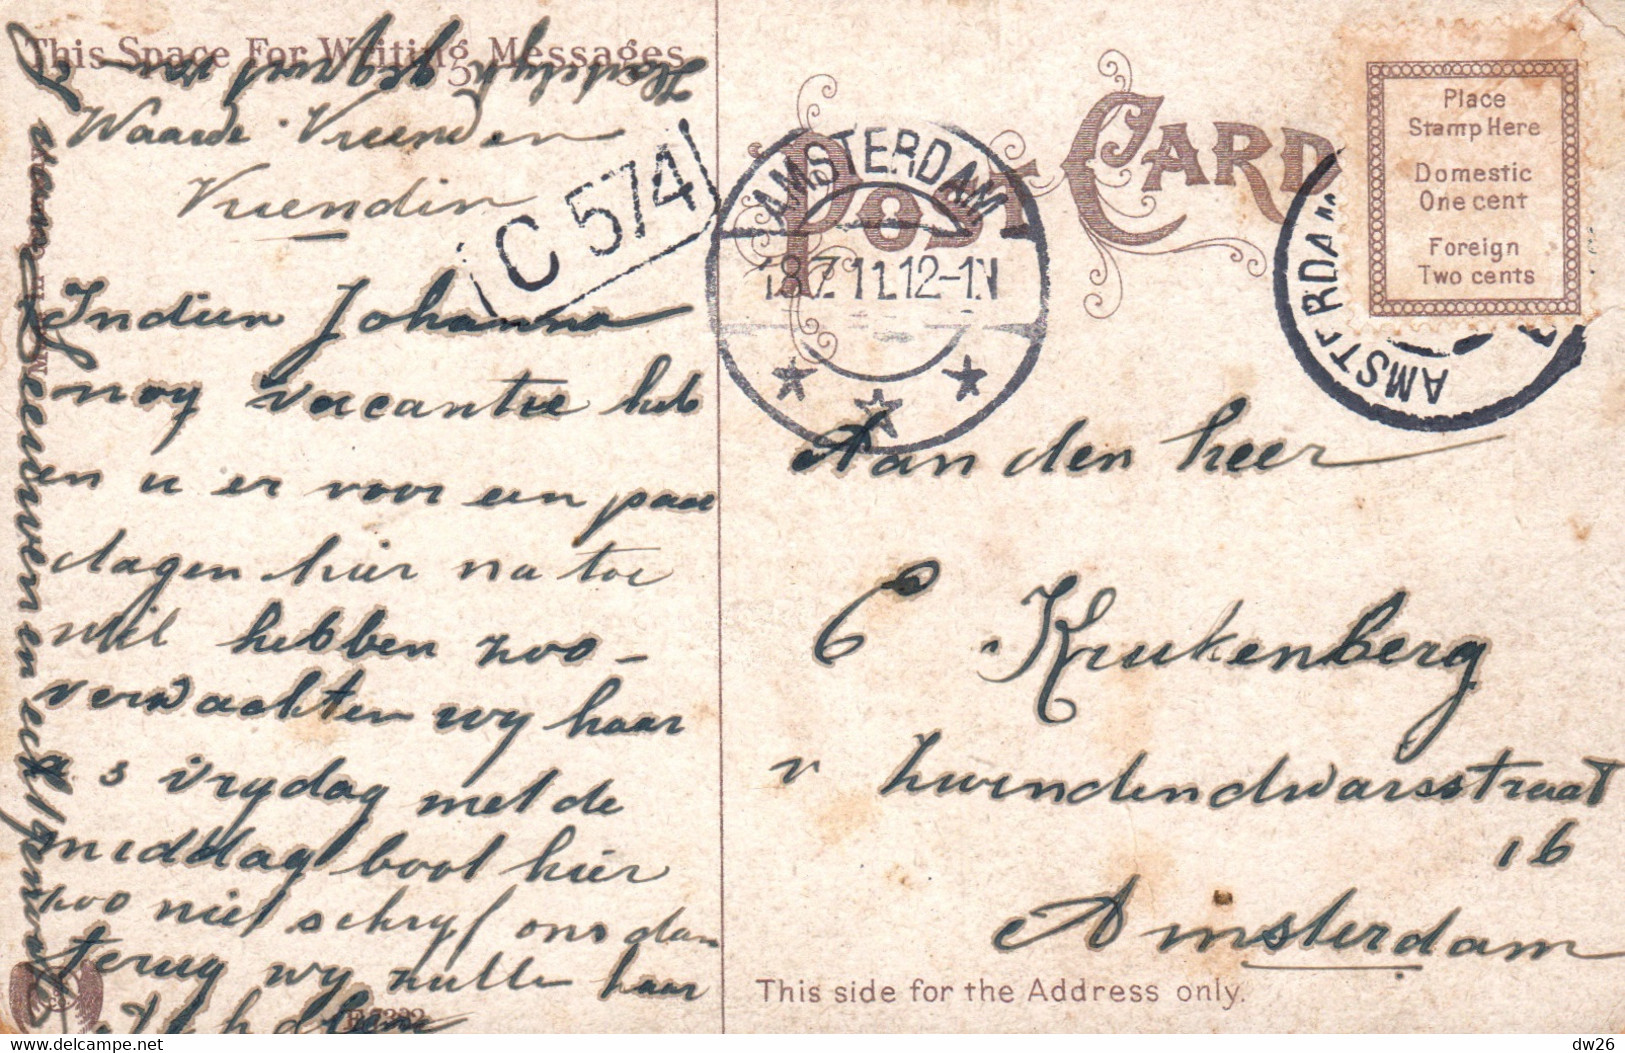 This Space For Writing Messages
Hartelyk gegroet van
Waarde Vrienden
Vriendin
Indien Johanna
nog vacantie heb
en u er voor een paar
dagen hier na toe
wil hebben zoo
verwachten wy haar
a s vrydag met de
middag boot hier
zoo niet schryf ons dan
terug wy zulle haar
C 574
AMSTERDAM
18.7.11.12-1N
POST CARD
Place
Stamp Here
Domestic
One cent
Foreign
Two cents
AMSTERDAM
Aan den heer
C Krukenberg
v Zwindendwarsstraat
16
Amsterdam
This side for the Address only.
delcampe.net
dw26